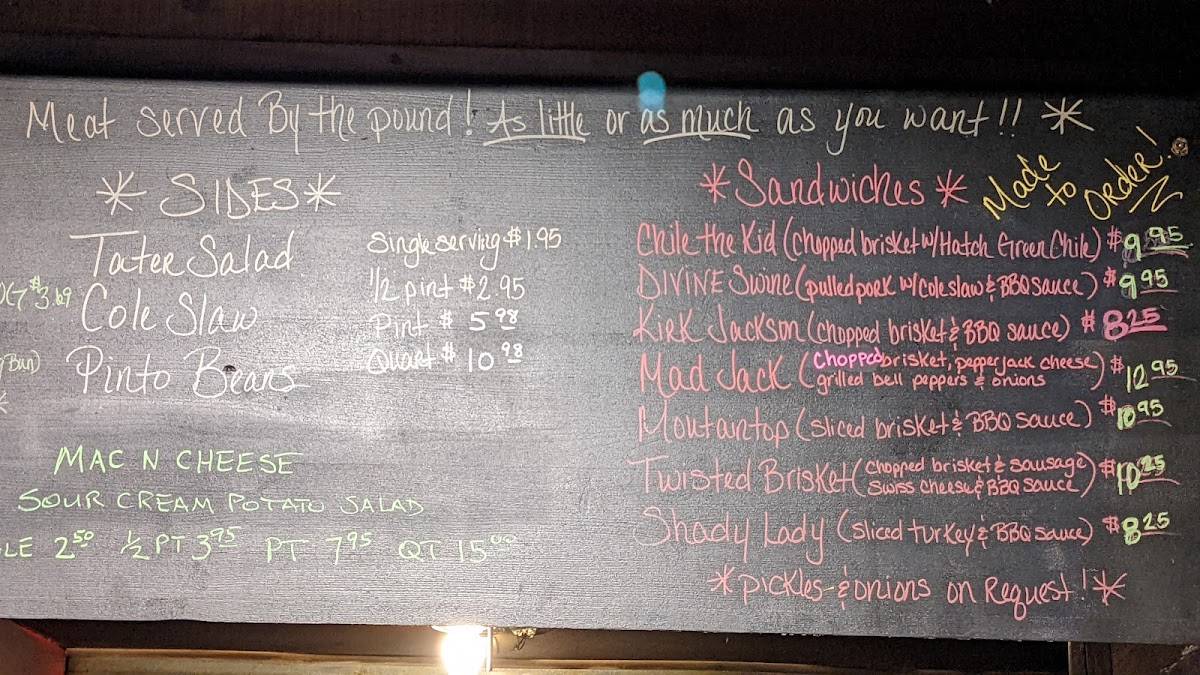 Meat served By the pound! As little or as much as you want!! *
* SIDES *
Tater Salad
Cole Slaw
Pinto Beans
Single serving $1.95
1/2 pint $2.95
Pint $ 5.98
Quart $ 10.98
$3.69
Bun)
MAC N CHEESE
SOUR CREAM POTATO SALAD
LE 2.50 1/2 PT 3.95 PT 7.95 QT 15.00
* Sandwiches *
Made to Order!
Chile the Kid (chopped brisket w/Hatch Green Chile) $9.95
DIVINE Swine (pulled pork w/coleslaw & BBQ sauce) $9.95
Kirk Jackson (chopped brisket & BBQ sauce) $8.25
Mad Jack (Chopped brisket, pepper jack cheese
grilled bell peppers & onions) $12.95
Moutantop (sliced brisket & BBQ sauce) $10.95
Twisted Brisket (chopped brisket & sausage
Swiss cheese & BBQ sauce) $10.25
Shady Lady (sliced turkey & BBQ sauce) $8.25
*pickles & onions on Request! *